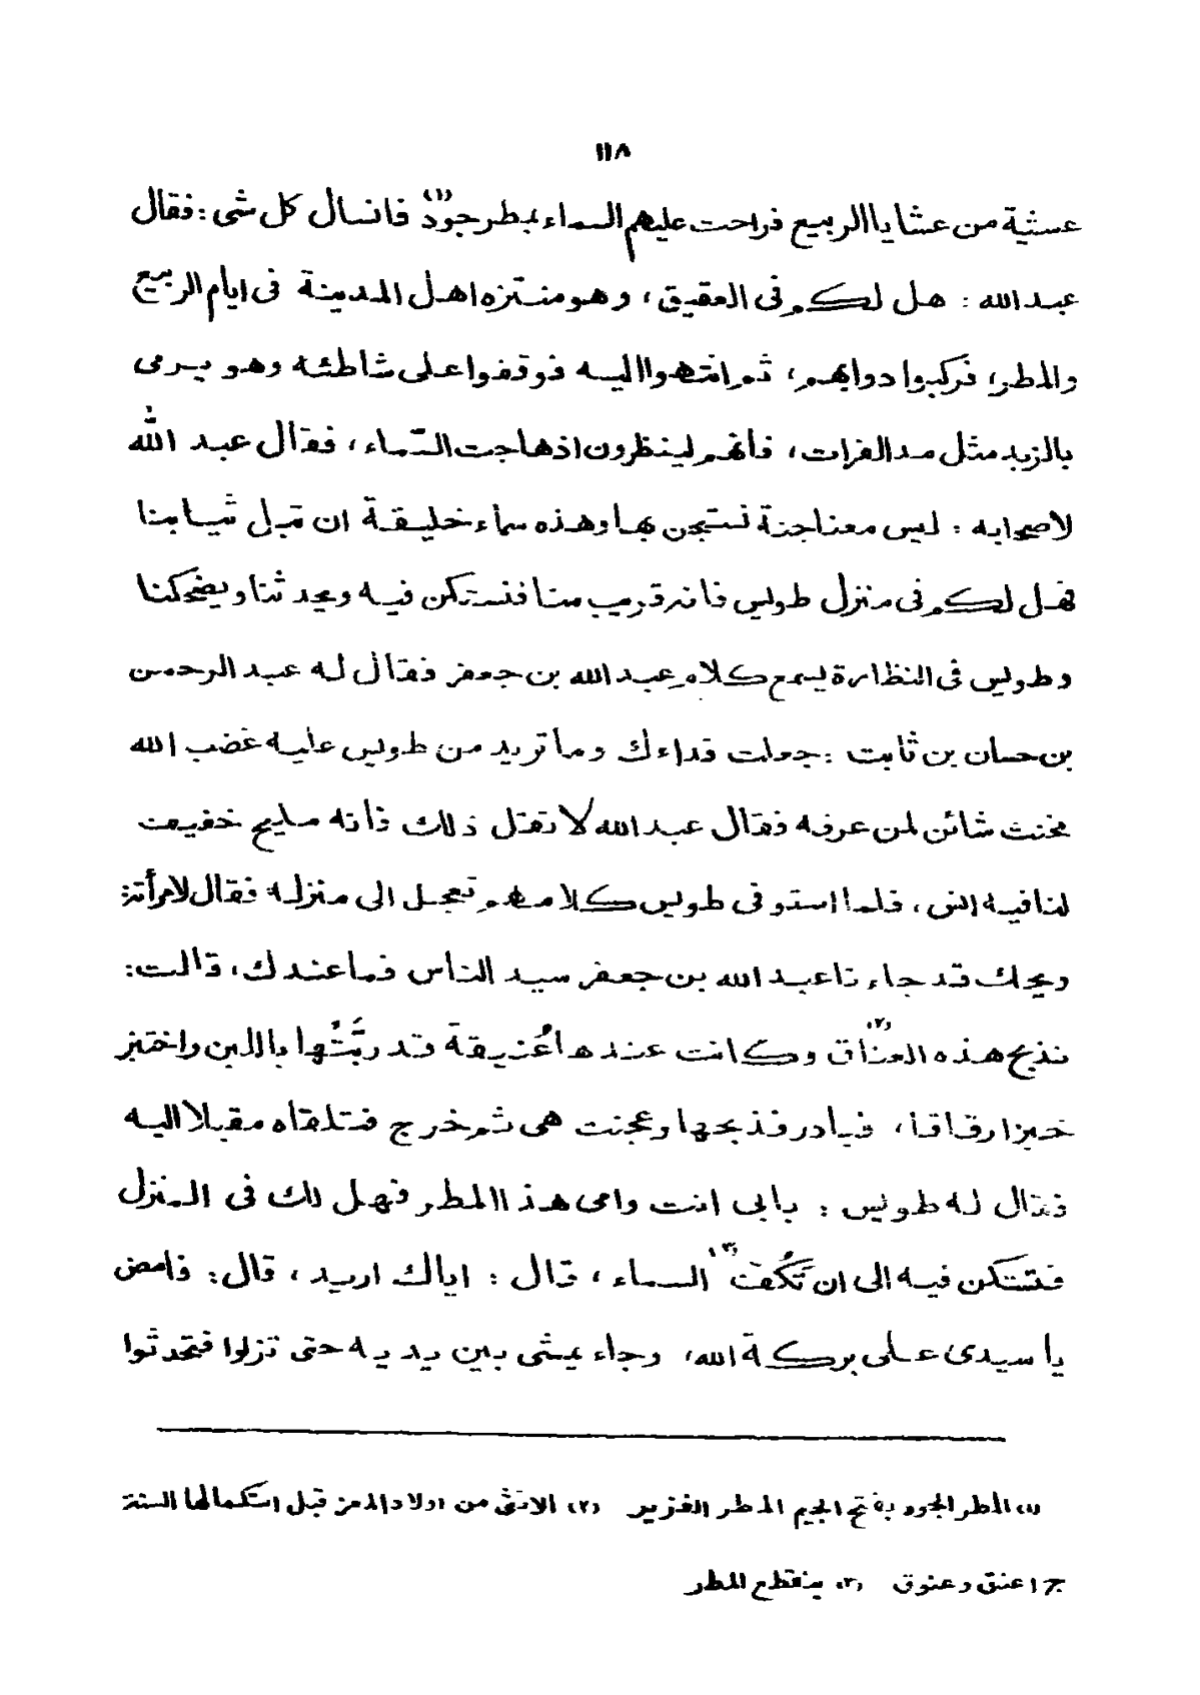 ١١٨
عشية من عشايا الربيع فراحت عليهم السماء بمطر جَوْد(١) فانسال كل شى : فقال
عبد الله : هل لكم فى العقيق ، وهو منتزه اهل المدينة فى ايام الربيع
والمطر ، فركبوا دوابهم ، ثم انتهوا اليه فوقفوا على شاطئه وهو يرمى
بالزبد مثل مد الفرات ، فانهم لينظرون اذ هاجت السَّماء ، فقال عبد الله
لاصحابه : ليس معنا جنة نستجن بها وهذه سماء خليقة ان تبل ثيابنا
فهل لكم فى منزل طويس فانه قريب منا فنستكن فيه ويحدثنا ويضحكنا
وطويس فى النظارة يسمع كلام عبد الله بن جعفر فقال له عبد الرحمن
بن حسان بن ثابت : جعلت فداءك وما تريد من طويس عليه غضب الله
مخنث شائن لمن عرفه فقال عبد الله لا تقل ذلك فانه مليح خفيف
لنا فيه انس ، فلما استوفى طويس كلامهم تعجل الى منزله فقال لامرأته :
ويحك قد جاءنا عبد الله بن جعفر سيد الناس فما عندك ، قالت :
نذبح هذه العناق(٢) وكانت عندها عُنَيقة قد ربَّتْها باللبن واختبز
خبزا رقاقا ، فبادر فذبحها وعجنت هى ثم خرج فتلقاه مقبلا اليه
فقال له طويس : بابى انت وامى هذا المطر فهل لك فى المنزل
فتستكن فيه الى ان تَكُفَّ(٣) السماء ، قال : اياك اريد ، قال : فامض
يا سيدى على بركة الله ، وجاء يمشى بين يديه حتى نزلوا فتحدثوا
(١) المطر الجود بفتح الجيم المطر الغزير (٢) الانثى من اولاد المعز قبل استكمالها السنة
ج اعنق وعنوق (٣) ينقطع المطر